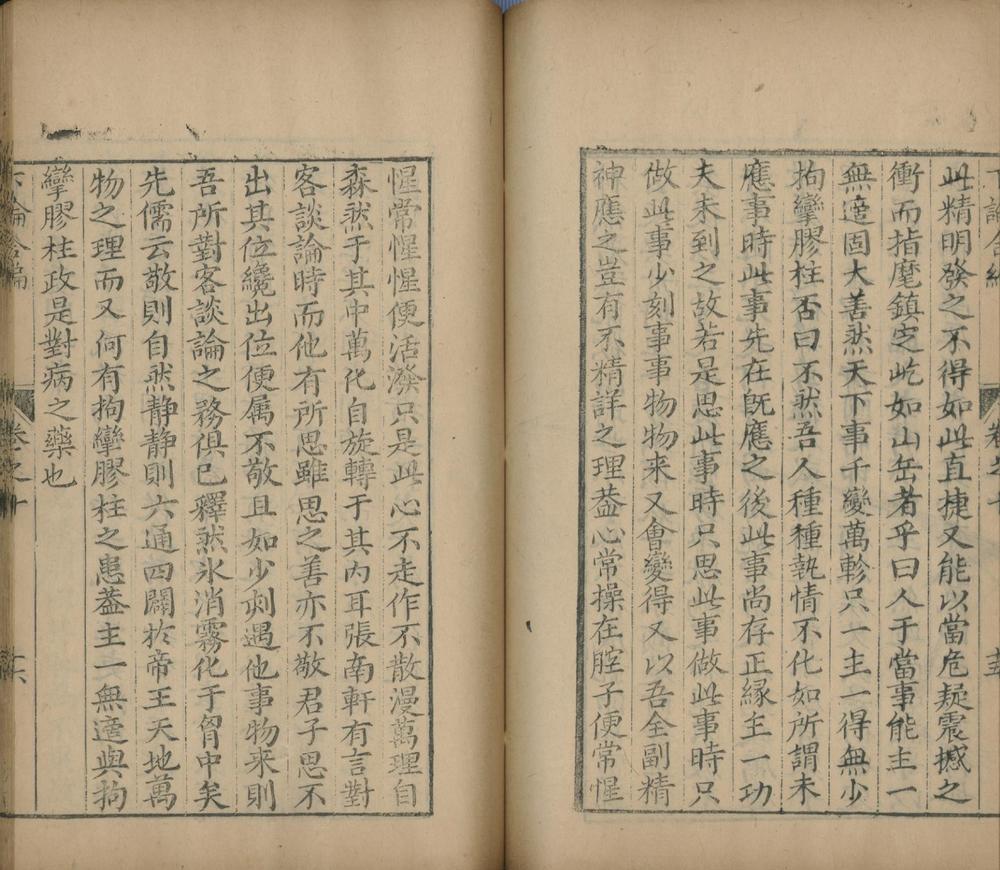 此精明發之不得如此直捷又能以當危疑震撼之
衝而指麾鎮定屹如山岳者乎曰人于當事能主一
無適固大善然天下事千變萬軫只一主一得無少
拘攣膠柱否曰不然吾人種種執情不化如所謂未
應事時此事先在既應之後此事尚存正緣主一功
夫未到之故若是思此事時只思此事做此事時只
做此事少刻事事物物来又會變得又以吾全副精
神應之豈有不精詳之理葢心常操在腔子便常惺
惺常惺惺便活潑只是此心不走作不散漫萬理自
森然于其中萬化自旋轉于其内耳張南軒有言對
客談論時而他有所思雖思之善亦不敬君子思不
出其位纔出位便属不敬且如少刺遇他事物来則
吾所對客談論之務俱已釋然氷消霧化于胷中矣
先儒云敬則自然静静則六通四闢於帝王天地萬
物之理而又何有拘攣膠柱之患葢主一無適與拘
攣膠柱政是對病之藥也
卷之十